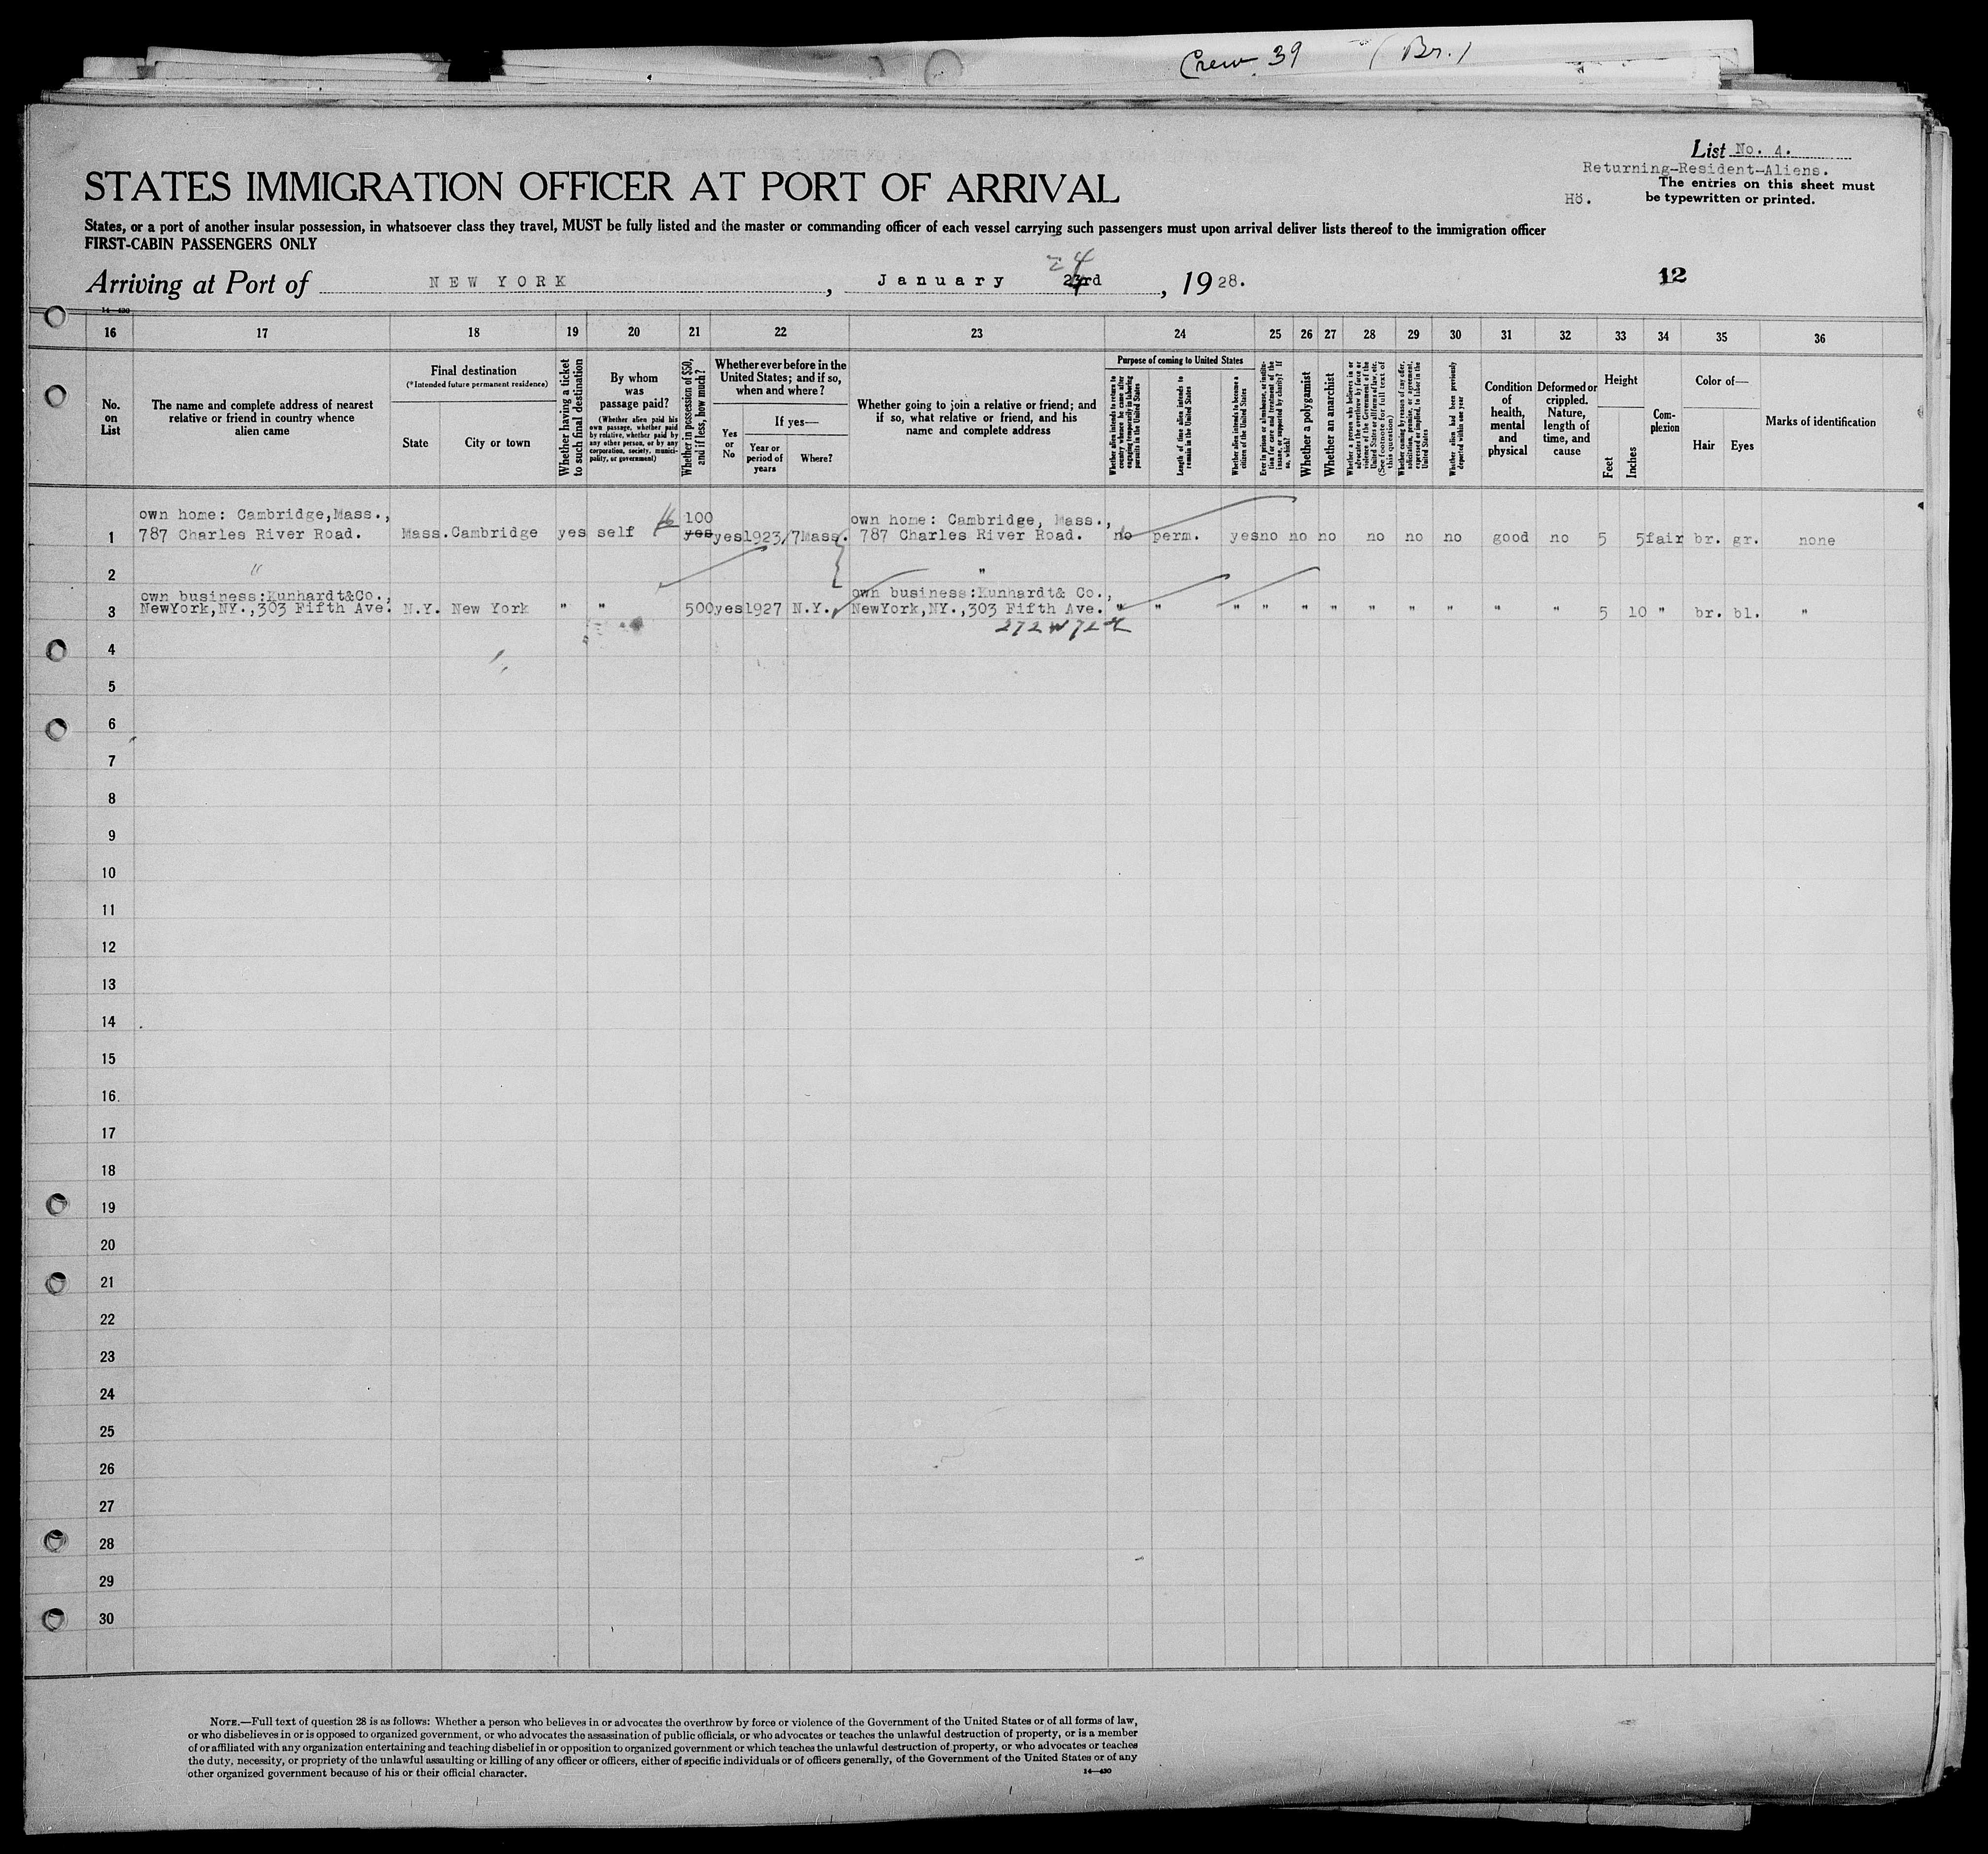 Crew 39 (Br.)
List No. 4.
Returning-Resident-Aliens.
The entries on this sheet must
be typewritten or printed.
H8.
STATES IMMIGRATION OFFICER AT PORT OF ARRIVAL
States, or a port of another insular possession, in whatsoever class they travel, MUST be fully listed and the master or commanding officer of each vessel carrying such passengers must upon arrival deliver lists thereof to the immigration officer
FIRST-CABIN PASSENGERS ONLY
24
Arriving at Port of NEW YORK, January 23rd, 1928.
12
14—430
16 17 18 19 20 21 22 23 24 25 26 27 28 29 30 31 32 33 34 35 36
No. on List
The name and complete address of nearest relative or friend in country whence alien came
Final destination
(*Intended future permanent residence)
State
City or town
Whether having a ticket to such final destination
By whom was passage paid?
(Whether alien paid his own passage, whether paid by relative, whether paid by any other person, or by any corporation, society, municipality, or government)
Whether in possession of $50, and if less, how much?
Whether ever before in the United States; and if so, when and where?
Yes or No
If yes—
Year or period of years
Where?
Whether going to join a relative or friend; and if so, what relative or friend, and his name and complete address
Purpose of coming to United States
Whether alien intends to return to country whence he came after engaging temporarily in laboring pursuits in the United States
Length of time alien intends to remain in the United States
Whether alien intends to become a citizen of the United States
Ever in prison or almshouse, or institution for care and treatment of the insane, or supported by charity? If so, which?
Whether a polygamist
Whether an anarchist
Whether a person who believes in or advocates the overthrow by force or violence of the Government of the United States or all forms of law, etc. (See footnote for full text of this question)
Whether coming by reason of any offer, solicitation, promise, or agreement, expressed or implied, to labor in the United States
Whether alien had been previously deported within one year
Condition of health, mental and physical
Deformed or crippled. Nature, length of time, and cause
Height
Feet
Inches
Complexion
Color of—
Hair
Eyes
Marks of identification
own home: Cambridge,Mass., 100 own home: Cambridge, Mass.,
1 787 Charles River Road. Mass. Cambridge yes self yes yes 1923/7 Mass. 787 Charles River Road. no perm. yes no no no no no no good no 5 5 fair br. gr. none
2 " "
own business:Kunhardt&Co., own business:Kunhardt& Co.,
3 NewYork,NY.,303 Fifth Ave. N.Y. New York " " 500 yes 1927 N.Y. NewYork,NY.,303 Fifth Ave. " " " " " " " " " " " 5 10 " br. bl. "
272 W 72
4
5
6
7
8
9
10
11
12
13
14
15
16
17
18
19
20
21
22
23
24
25
26
27
28
29
30
NOTE.—Full text of question 28 is as follows: Whether a person who believes in or advocates the overthrow by force or violence of the Government of the United States or of all forms of law,
or who disbelieves in or is opposed to organized government, or who advocates the assassination of public officials, or who advocates or teaches the unlawful destruction of property, or is a member
of or affiliated with any organization entertaining and teaching disbelief in or opposition to organized government or which teaches the unlawful destruction of property, or who advocates or teaches
the duty, necessity, or propriety of the unlawful assaulting or killing of any officer or officers, either of specific individuals or of officers generally, of the Government of the United States or of any
other organized government because of his or their official character.
14—430